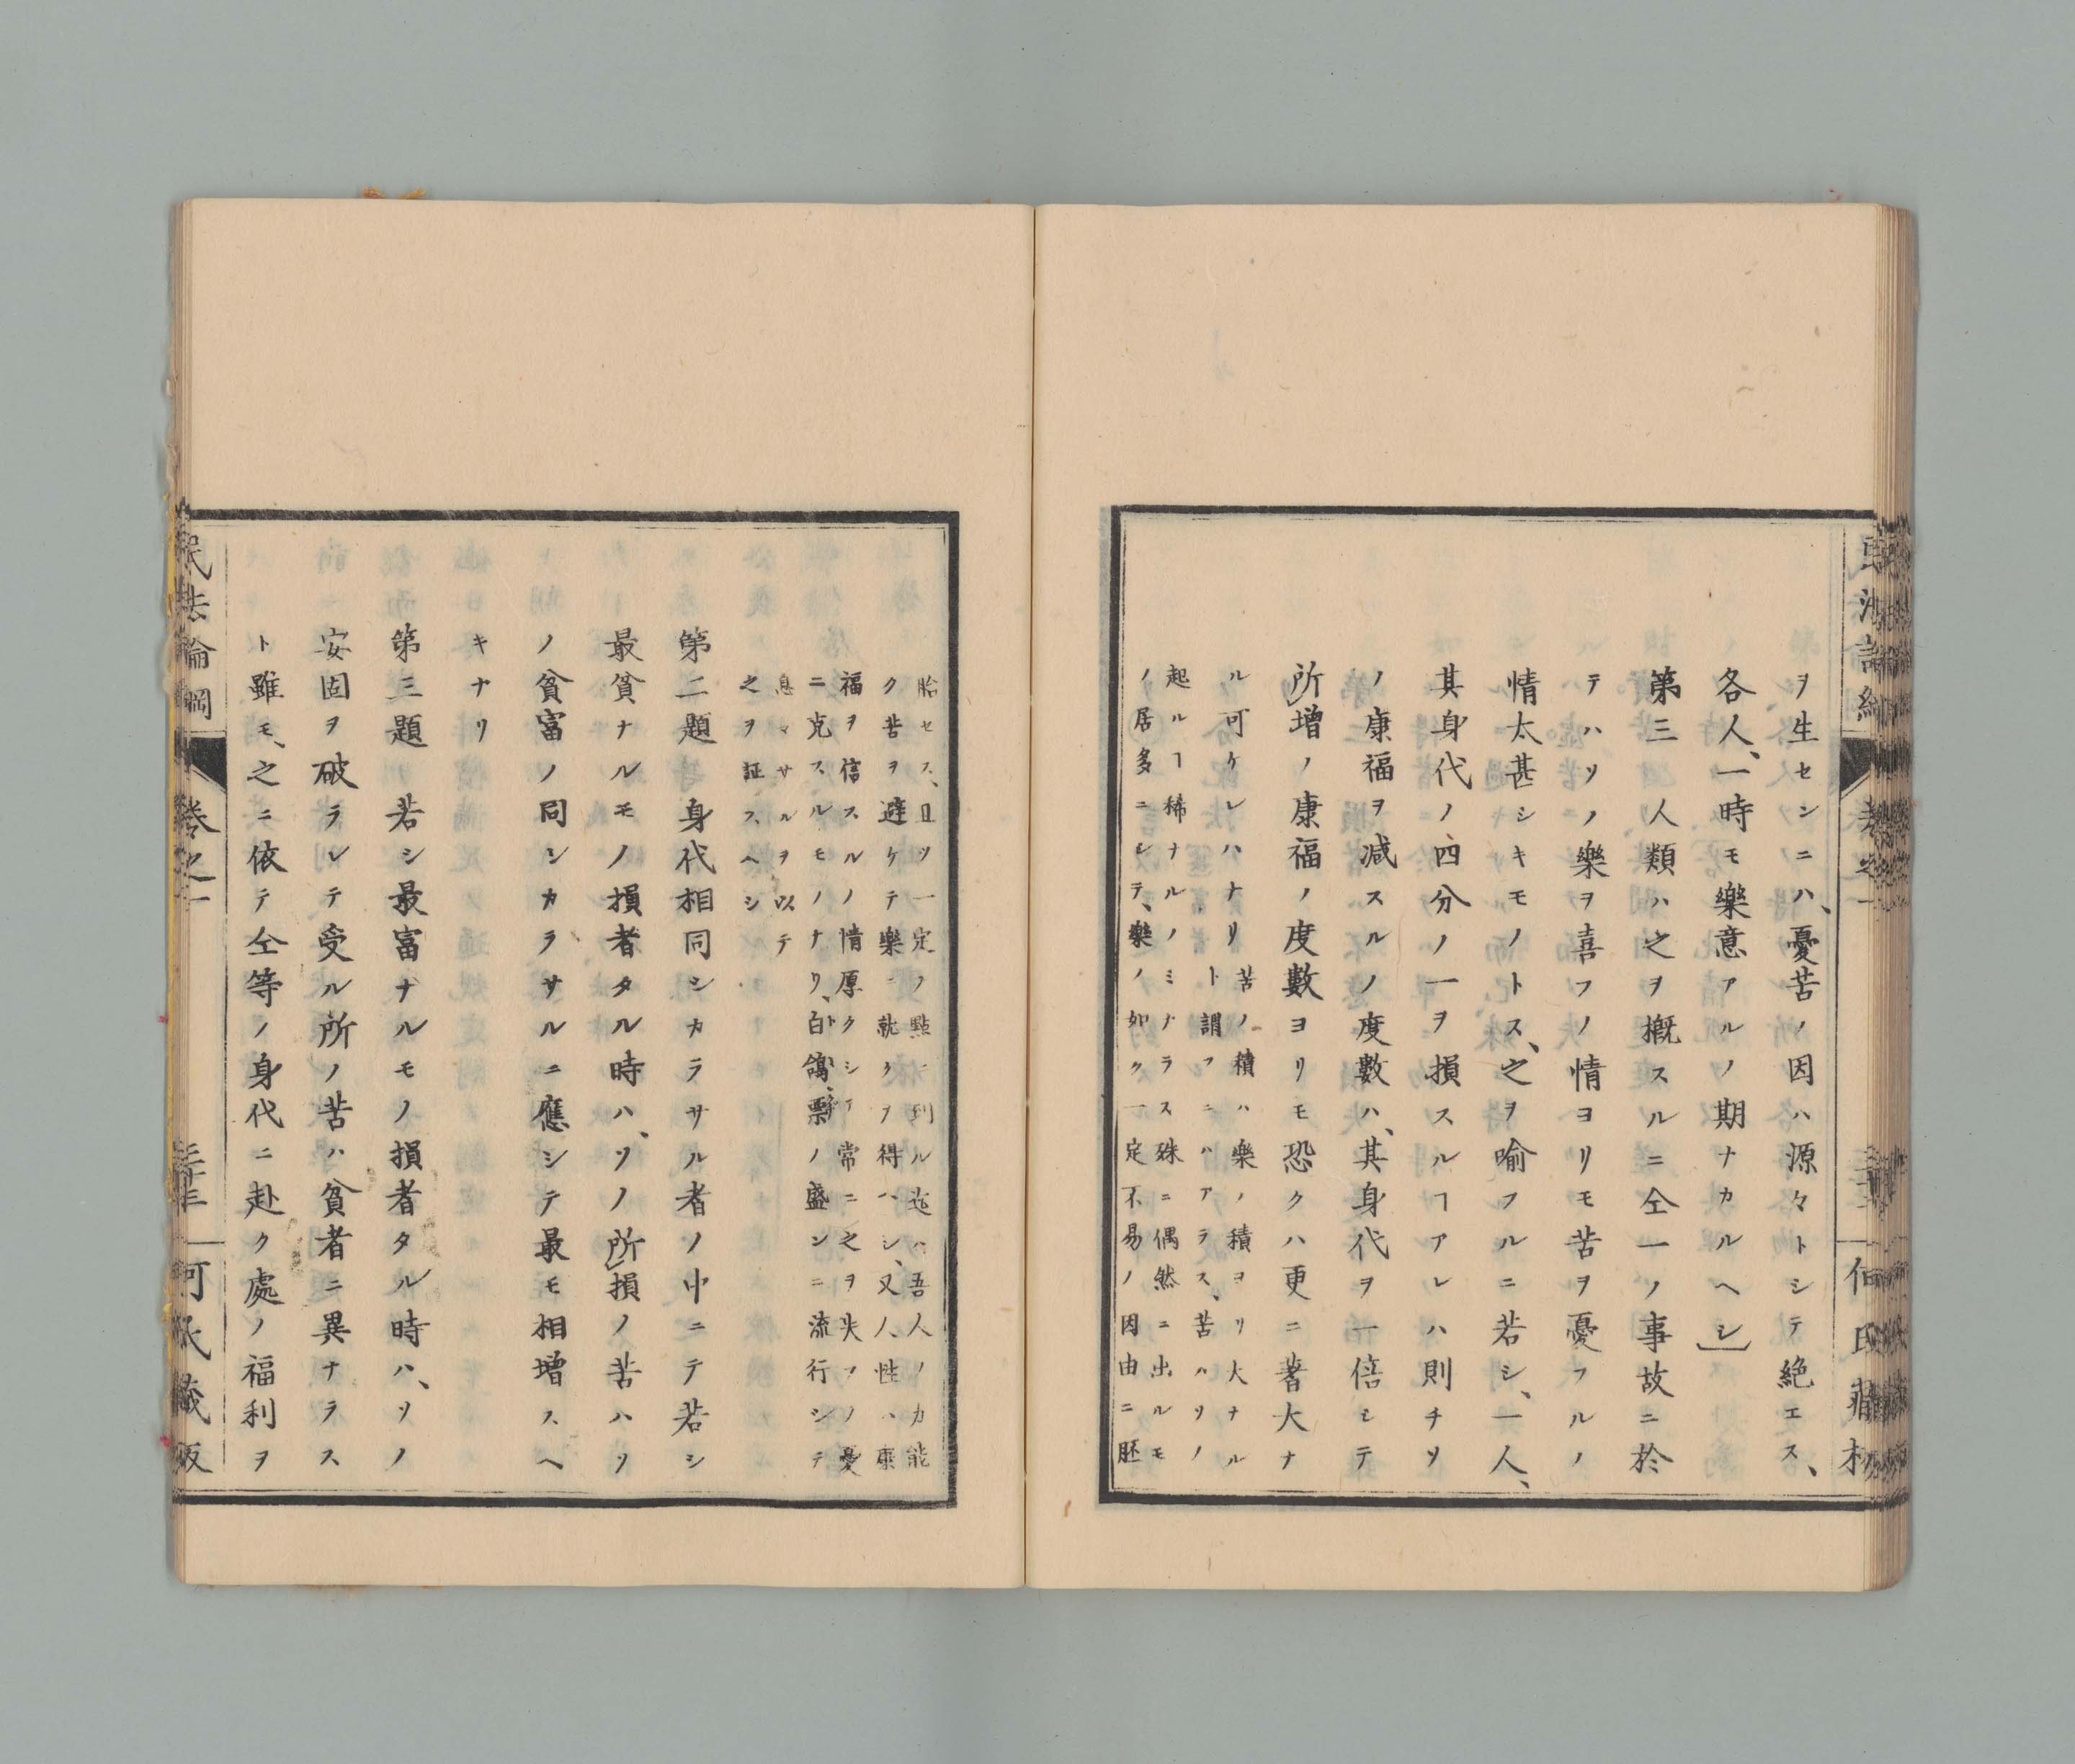 ヲ生センニハ、憂苦ノ因ハ源々トシテ絶エス、
各人、一時モ樂意アルノ期ナカルヘシ」
第三人類ハ之ヲ概スルニ仝一ノ事故ニ於
テハソノ樂ヲ喜フノ情ヨリモ苦ヲ憂フルノ
情太甚シキモノトス、之ヲ喻フルニ若シ、一人、
其身代ノ、四分ノ一ヲ損スルヿアレハ則チソ
ノ康福ヲ減スルノ度數ハ、其身代ヲ一倍シテ
所增ノ康福ノ度數ヨリモ恐クハ更ニ著大ナ
ル可ケレハナリ
苦ノ積ハ樂ノ積ヨリ大ナル
ト謂フニハアラス、苦ハソノ
起ルヿ稀ナルノミナラス殊ニ偶然ニ出ルモ
ノ居多ニシテ、樂ノ如ク一定不易ノ因由ニ胚
胎セス、且ソ一定ノ點ニ到ル迄ハ吾人ノ力能
ク苦ヲ避ケテ樂ニ就クヲ得ヘシ、又人性ハ康
福ヲ信スルノ情原クシテ常ニ之ヲ失フノ憂
ニ克スルモノナリ、白鴿票ノ盛ンニ流行シテ
息マサルヲ以テ
之ヲ証スヘシ
第二題 身代相同シカラサル者ノ中ニテ若シ
最貧ナルモノ損者タル時ハ、ソノ所損ノ苦ハソ
ノ貧富ノ同シカラサルニ應シテ最モ相增スヘ
キナリ
第三題 若シ最富ナルモノ損者タル時ハ、ソノ
安固ヲ破ラレテ受ル所ノ苦ハ貧者ニ異ナラス
ト雖モ、之ニ依テ仝等ノ身代ニ赴ク處ノ福利ヲ
民法論綱
卷之一
何氏藏版